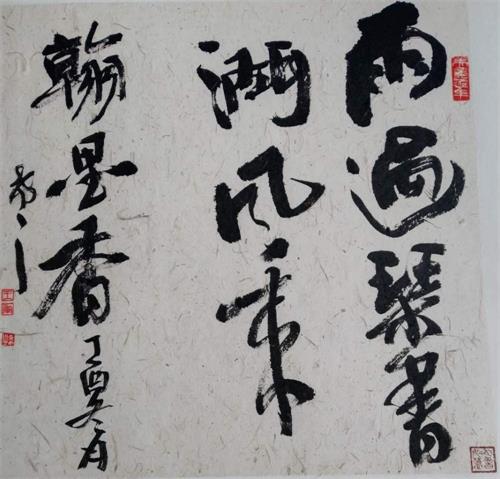 雨過琴書
潤風來
翰墨香丁酉冬月